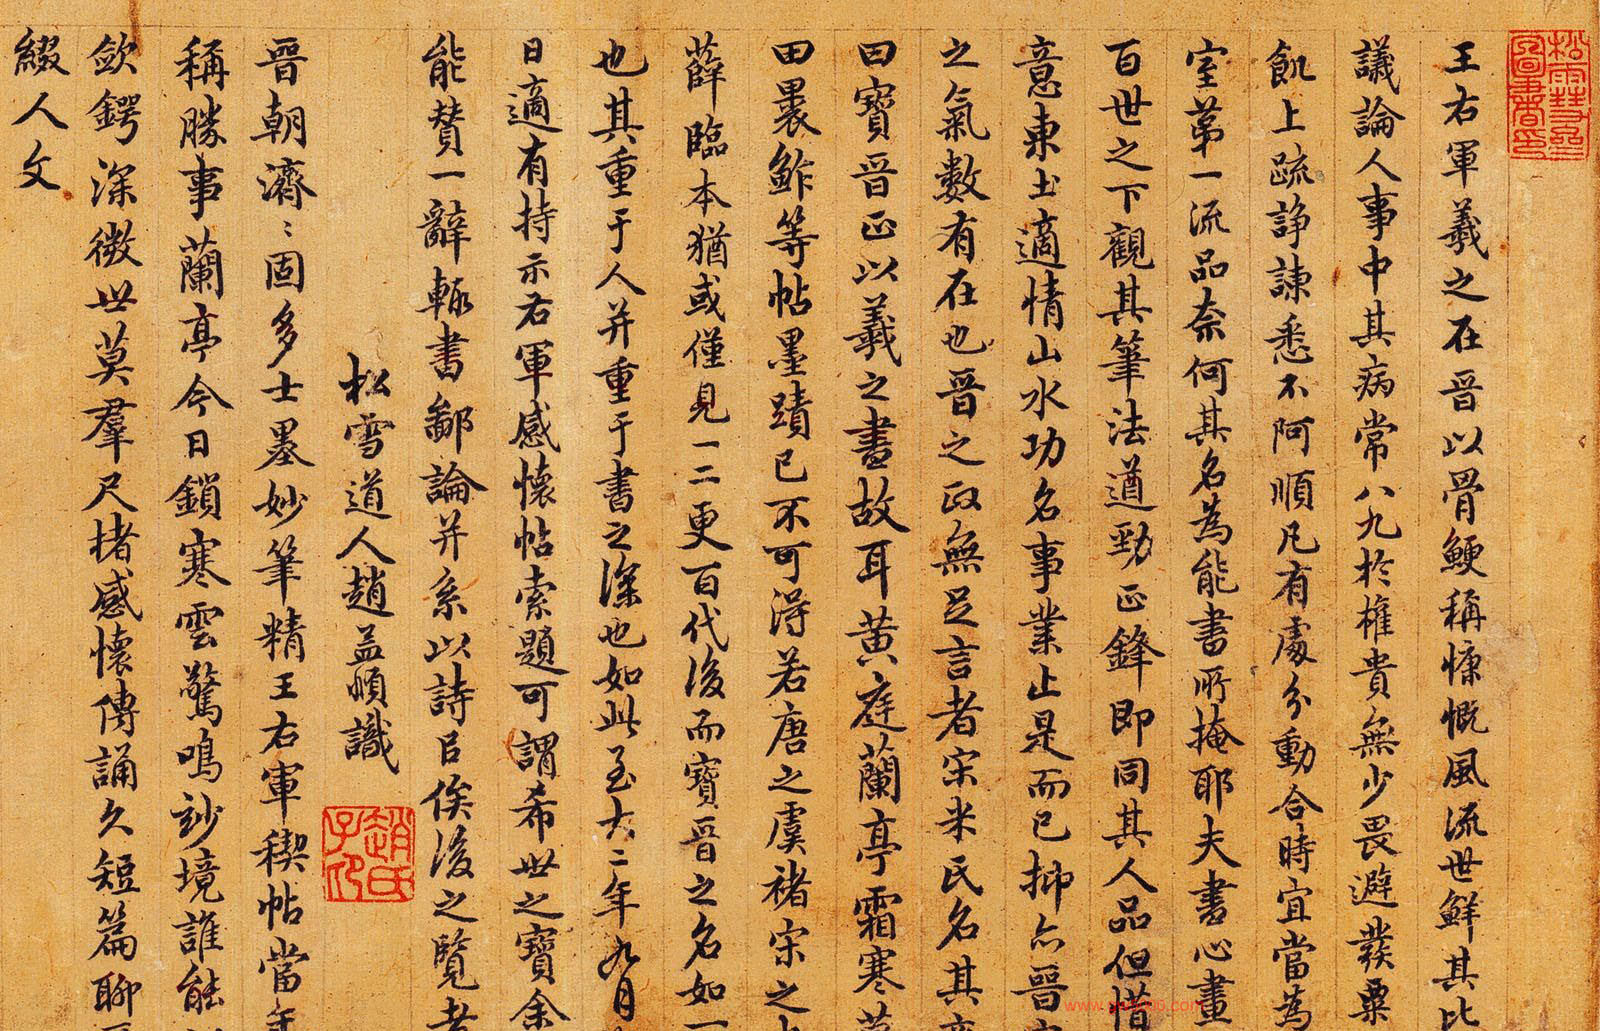 王右軍羲之在晉以骨鯁稱慷慨風流世鮮其比
議論人事中其病常八九於權貴無少畏避發粟
飢上疏諍諫悉不阿順凡有處分動合時宜當為
室第一流品奈何其名為能書所掩耶夫書心畫
百世之下觀其筆法遒勁正鋒即同其人品但惜
意東土適情山水功名事業止是而已抑亦晉
之氣數有在也晉之政無足言者宋米氏名其
曰寶晉正以羲之書故耳黃庭蘭亭霜寒
田裹鮓等帖墨蹟已不可得若唐之虞褚宋之
薛臨本猶或僅見一二更百代後而寶晉之名如
也其重于人并重于書之深也如此至大二年九月
日適有持示右軍感懷帖索題可謂希世之寶余
能贊一辭輒書鄙論并系以詩以俟後之覽者
松雪道人趙孟頫識
晉朝濟〻固多士墨妙筆精王右軍稧帖當年
稱勝事蘭亭今日鎖寒雲驚鳴玅境誰能
斂鍔深微世莫羣尺楮感懷傳誦久短篇聊
綴人文
趙氏子印
www.